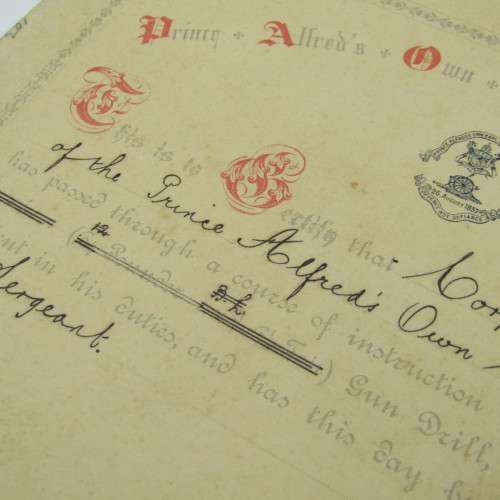 Prince + Alfred's + Own +
This is to Certify that Cor
of the Prince Alfred's Own
has passed through a course of instruction
(12 Pounder B.L.) Gun Drill,
ent in his duties, and has this day b
Sergeant.
26 AUGUST 1857